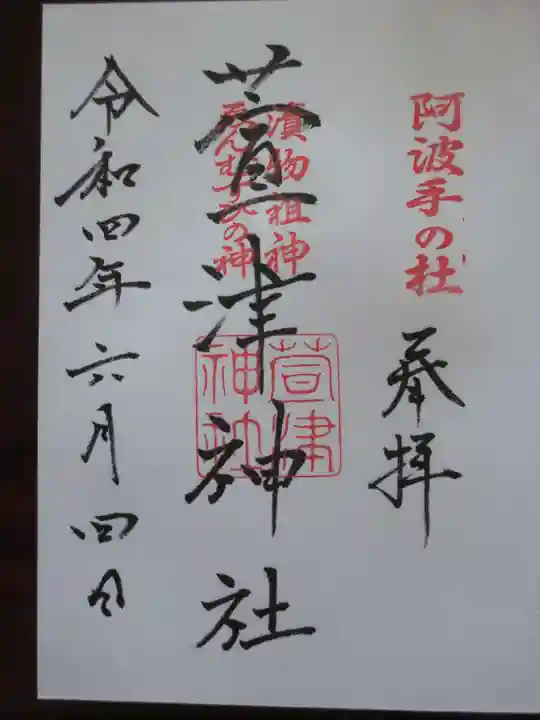 阿波手の杜
奉拝
漬物祖神
えんむすびの神
萱津神社
萱津
神社
令和四年六月四日